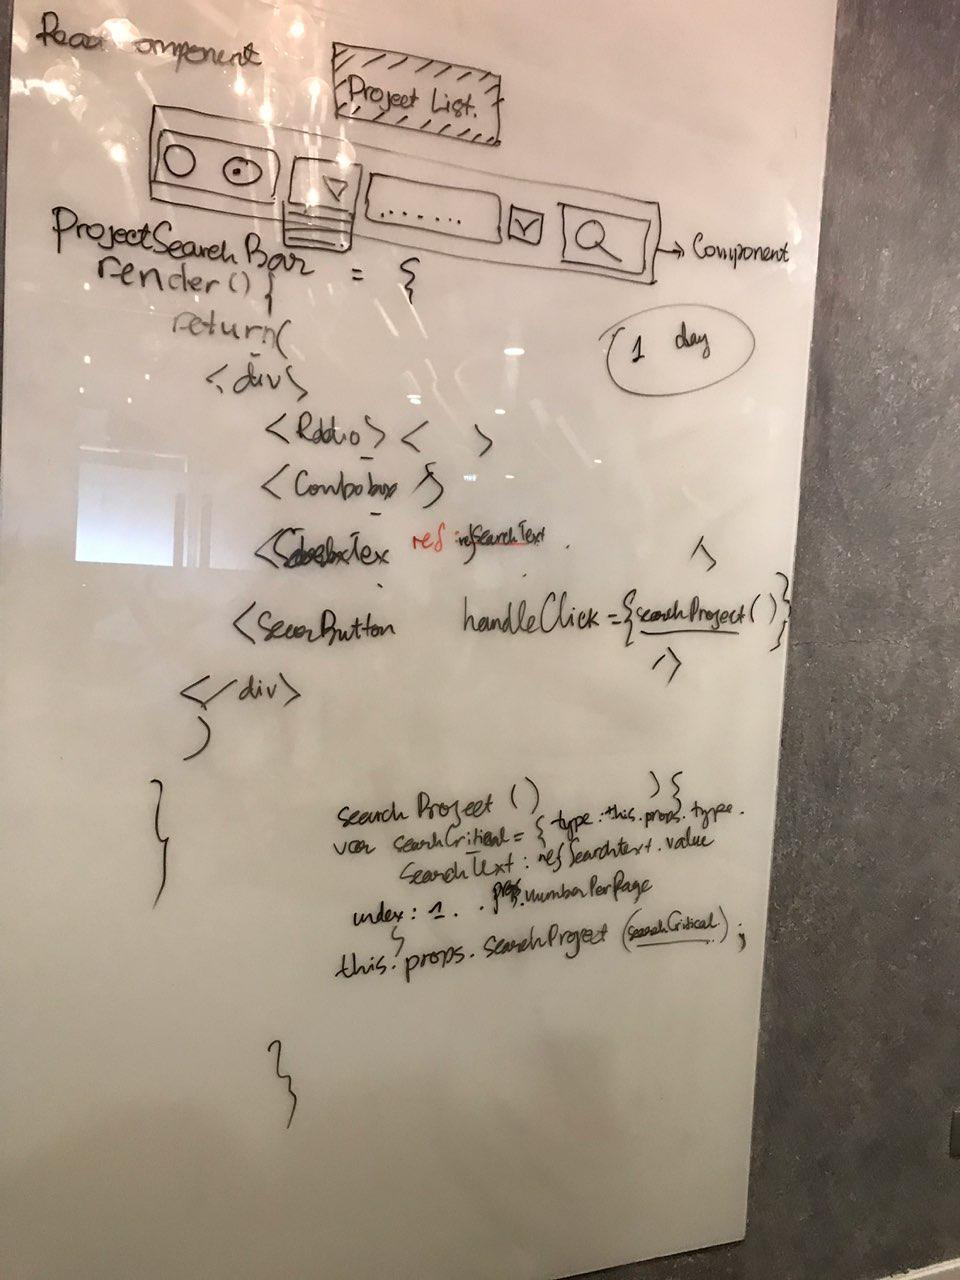 Component
Project List.
→ Component
ProjectSearchBar = {
render() {
return(
1 day
<div>
<Radio> < >
<Combobox />
ref refSearchText >
<SearButton handleClick = {searchProject()}
/>
</div>
)
}
searchProject () ) {
var searchCritical = { type : this.props.type.
SearchText : refSearchtext.value
index : 1 . . props.numberPerPage
}
this.props.searchProject (searchCritical) ;
}